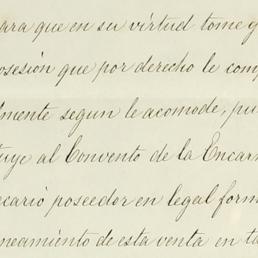 ara que en su virtud tome y
osesión que por derecho le com
lmente segun le acomode, pu
tuye al Convento de la Encar
ecario poseedor en legal form
neamiento de esta venta en ta